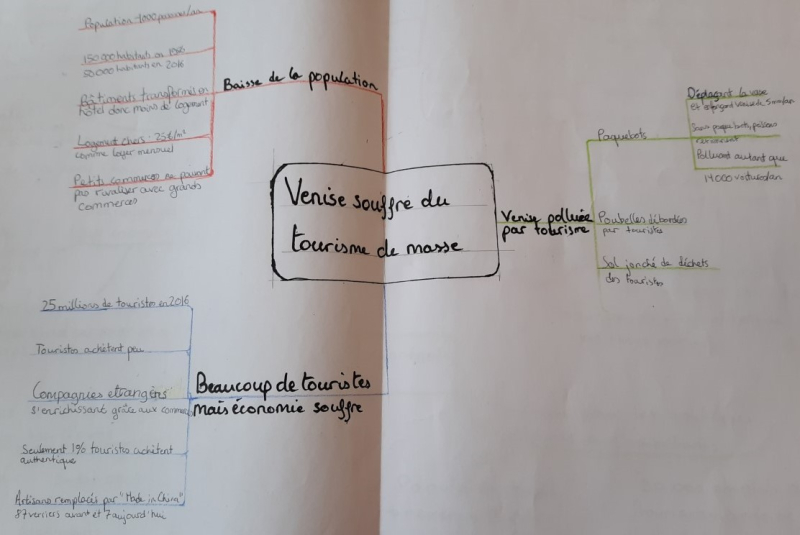 Venise souffre du
tourisme de masse
Baisse de la population
Population -1000 personnes/an
150 000 habitants en 1950
50 000 habitants en 2016
Bâtiments transformés en
hôtel donc moins de logement
Logement chers - 25€/m²
comme loyer mensuel
Petits commerces ne pouvant
pas rivaliser avec grands
commerces
Venise polluée
par tourisme
Paquebots
Déplaçant la vase
et
Polluant autant que
14000 voitures/an
Poubelles débordées
par touristes
Sol jonché de déchets
des touristes
Beaucoup de touristes
mais économie souffre
25 millions de touristes en 2016
Touristes achètent peu
Compagnies etrangères
s'enrichissant grâce aux commerces
Seulement 1% touristes achètent
authentique
Artisans remplacés par "Made in China"
87 verriers avant et 7 aujourd'hui